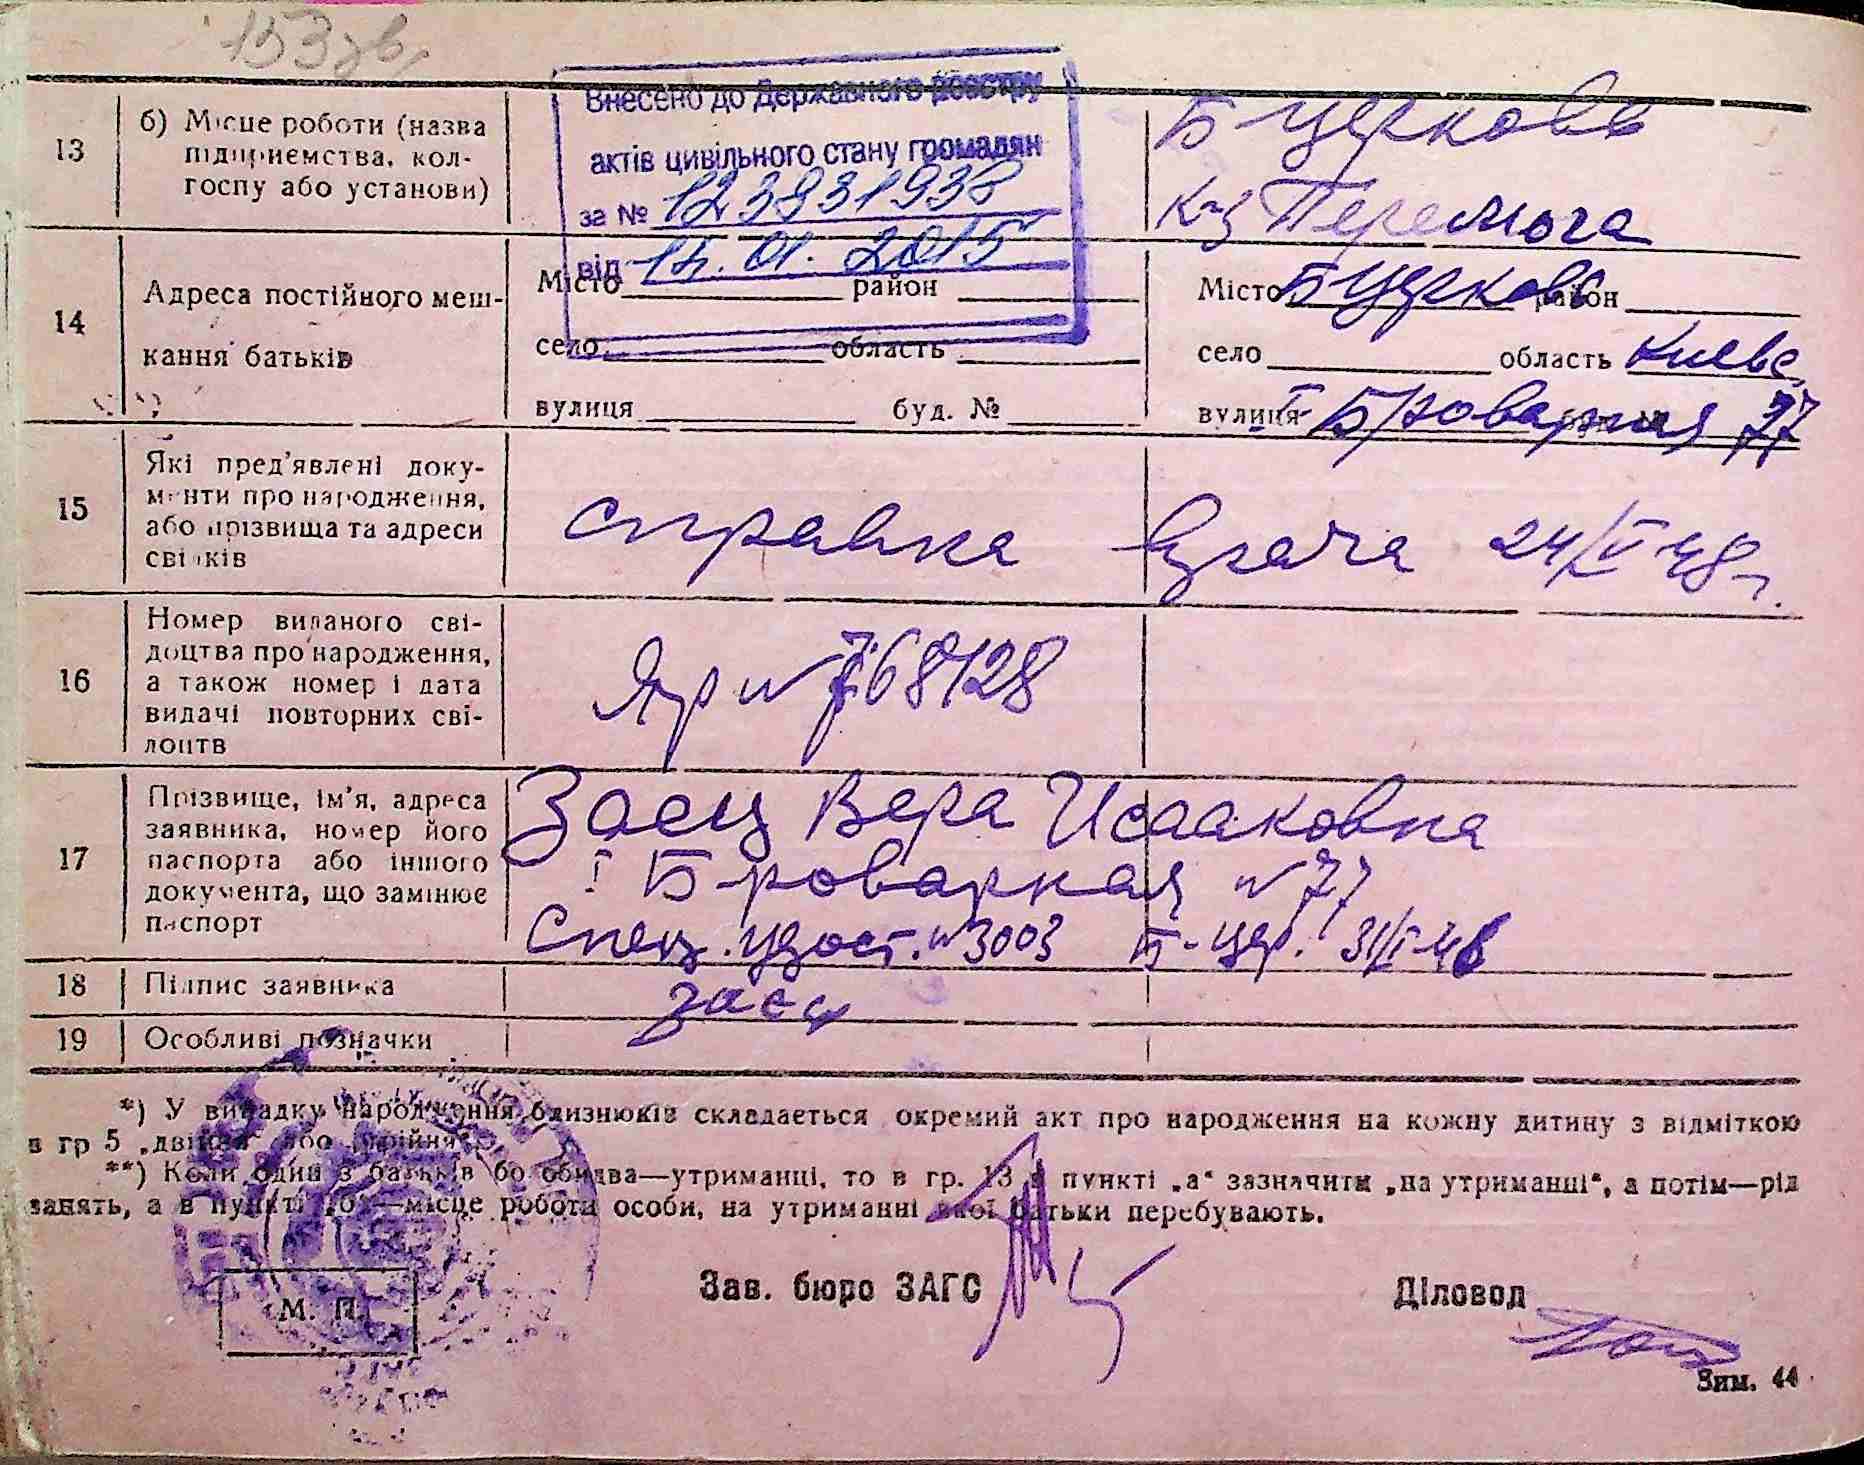 153 зв.
13
б) Місце роботи (назва
підприємства, кол-
госпу або установи)
Внесено до Державного реєстру
актів цивільного стану громадян
за № 123831938
від 15.01.2015
Б Церковь
к-з Перемога
14
Адреса постійного меш-
кання батьків
Місто район
село область
вулиця буд. №
Місто Б Церковь район
село область Киевс
вулиця I Броварная 77
15
Які пред'явлені доку-
менти про народження,
або прізвища та адреси
свідків
справка врача 24/V 48 г.
16
Номер виданого сві-
доцтва про народження,
а також номер і дата
видачі повторних сві-
доцтв
Яр № 768128
17
Прізвище, ім'я, адреса
заявника, номер його
паспорта або іншого
документа, що замінює
паспорт
Заец Вера Исааковна
I Броварная № 77
Спец. удост. № 3003 Б-Цер. 31/I-48
18
Підпис заявника
Заец
19
Особливі позначки
*) У випадку народження близнюків складається окремий акт про народження на кожну дитину з відміткою
в гр 5 „двійня“ або „трійня“.
**) Коли один з батьків або обидва—утриманці, то в гр. 13 в пункті „а“ зазначити „на утриманні“, а потім—рід
занять, а в пункті „б“—місце роботи особи, на утриманні якої батьки перебувають.
М. П.
Зав. бюро ЗАГС
Діловод
Зим. 44